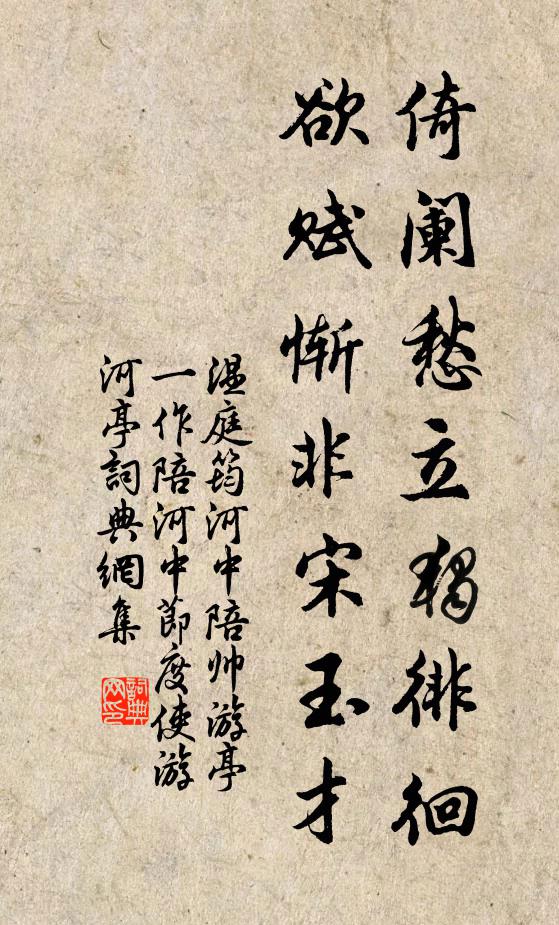 倚阑愁立独徘徊
欲赋惭非宋玉才
温庭筠河中陪帅游亭
一作陪河中節度使游
河亭詞典網集
詞典网印